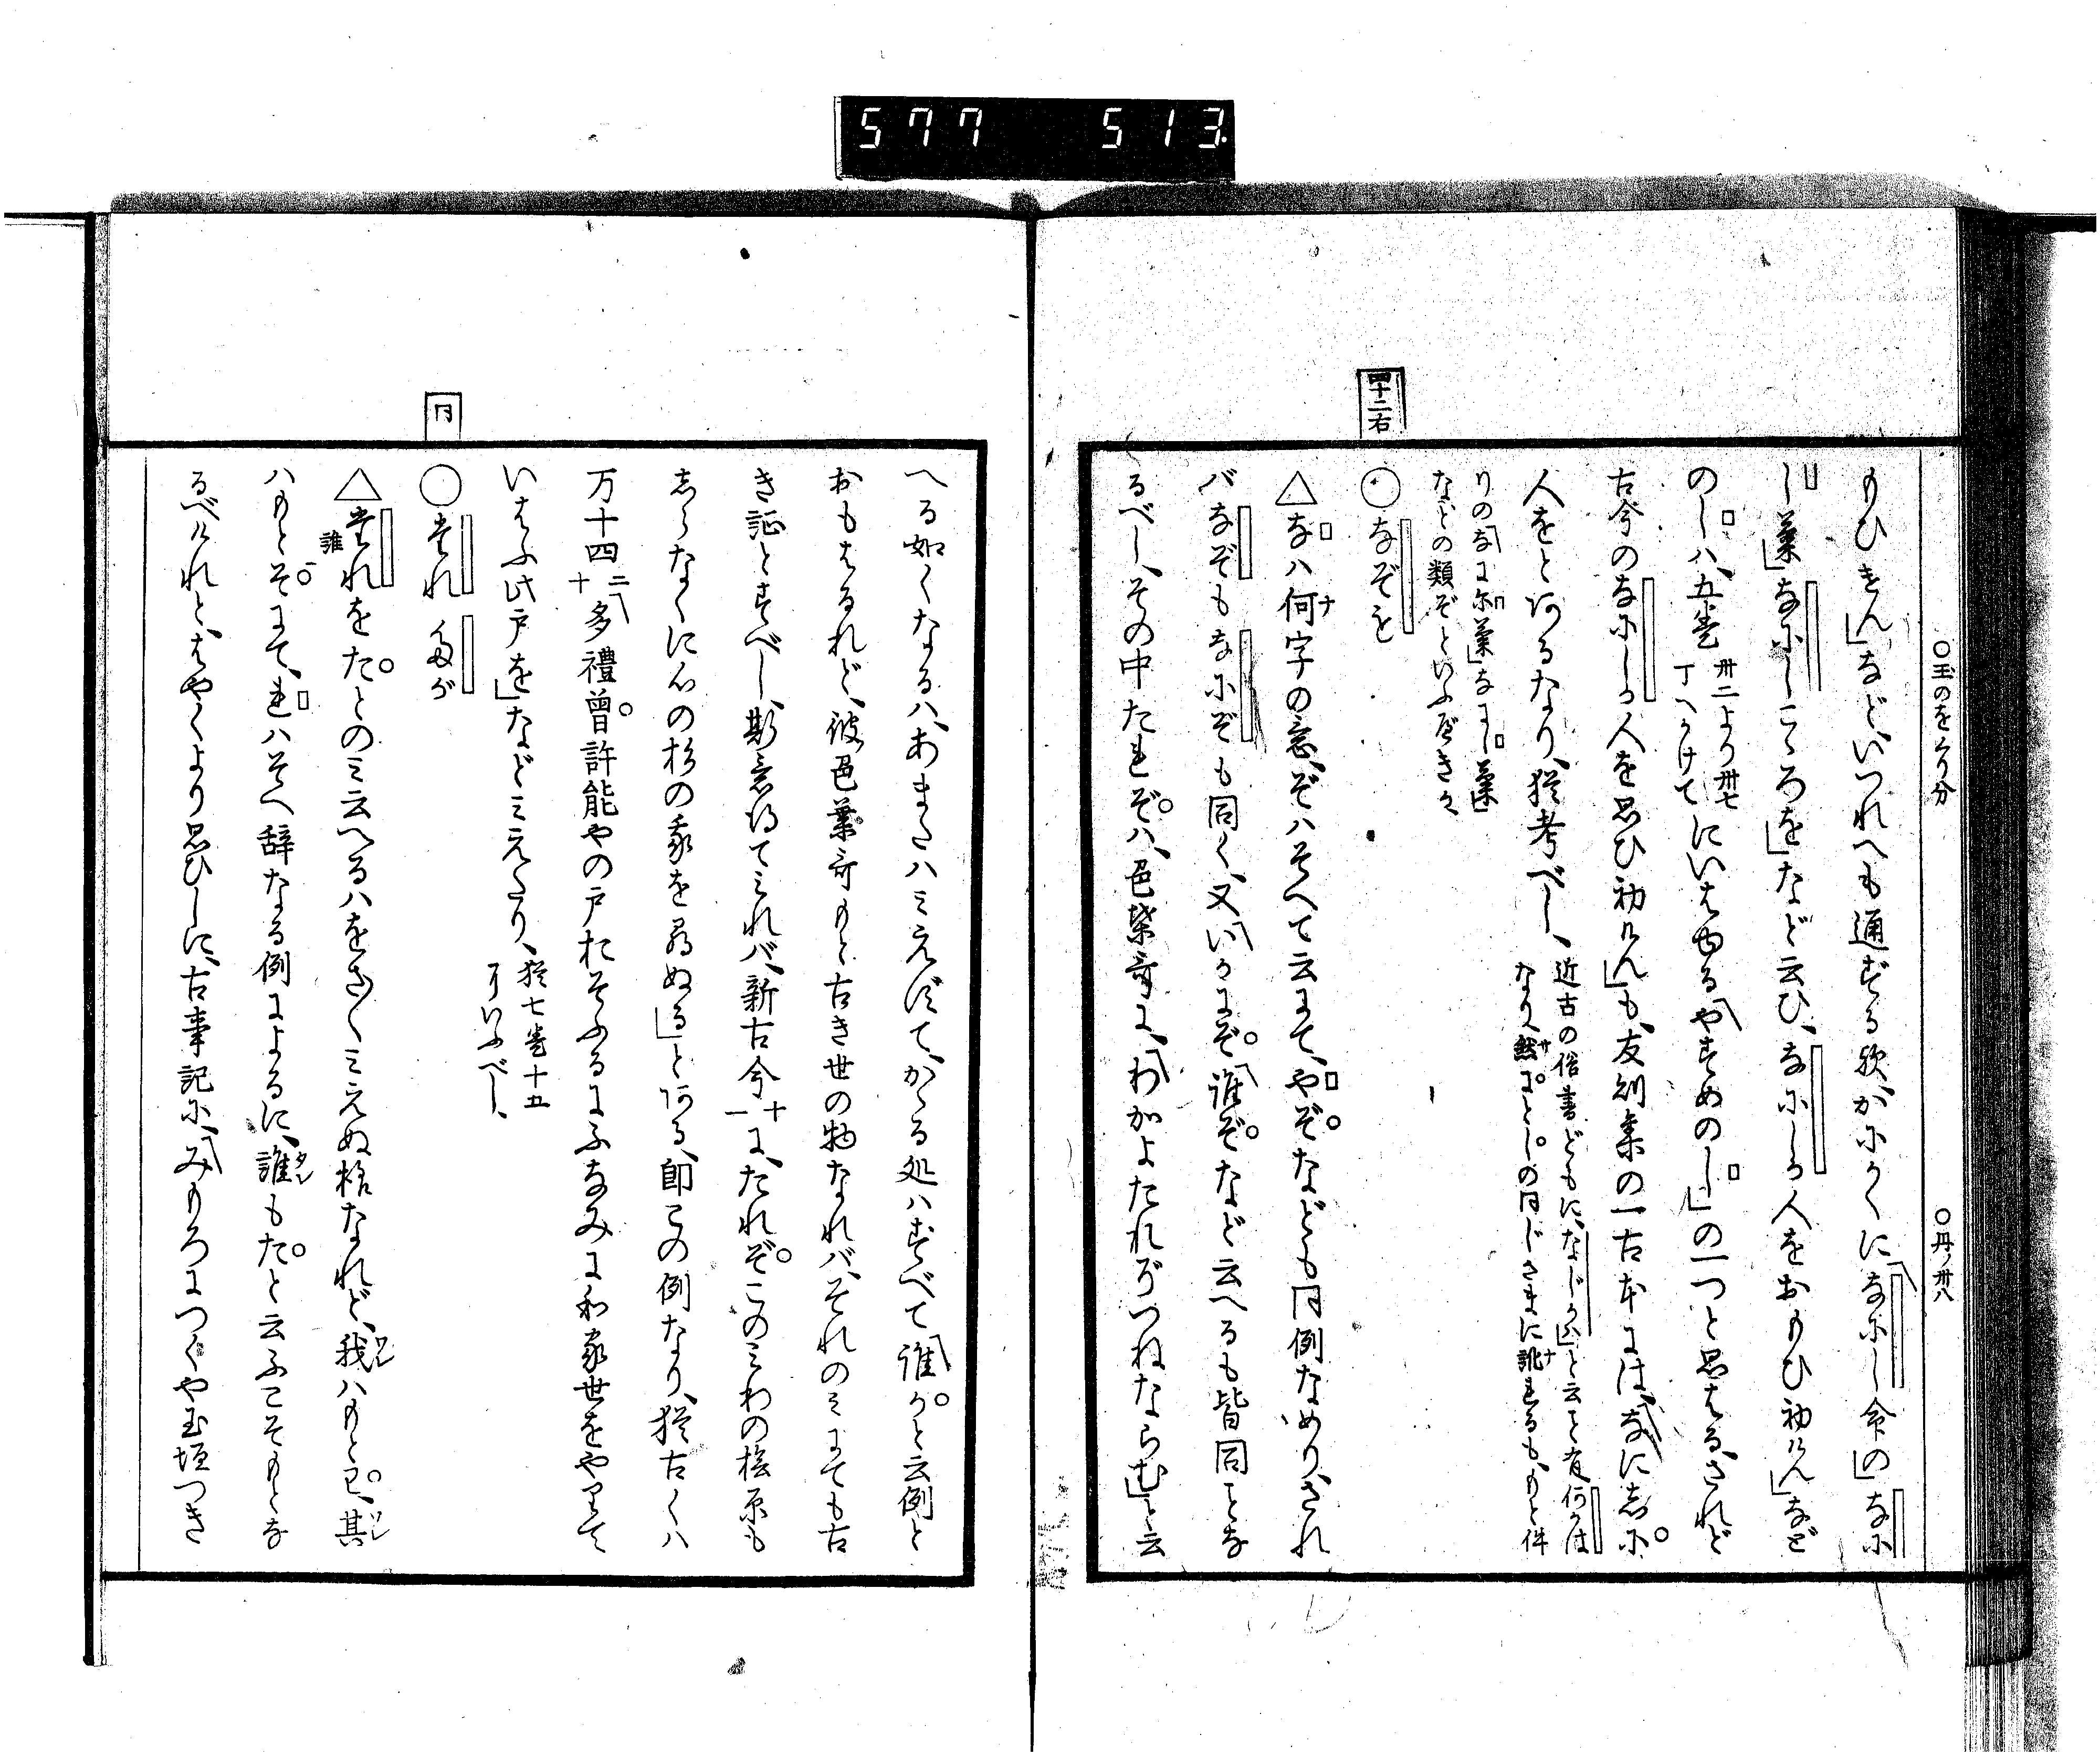 577 513
○玉のをくり分 ○丹ノ卅八
もひきん」など、いつれへも通ずる歟、がにかくに「なにし命の」なに
し葉」なにしこゝろを」など云ひ、なにしか人をおもひ初けん」など
のしハ、五巻 卅二より卅七丁へかけて にいはゆるやすめのし」の一つと思はる、されど
古今のなにしか人を思ひ初けん」も、友則集の一古本には、なに志に
人をとあるなり、猶考べし、 近古の俗書どもに、なじかは」と云こと有何かは
なり、然にとしの同じさまに訛れるも、もと件
りのなに尓葉」なにし葉」
などの類ぞといふべきか
四十二右
○なぞを
△なハ何字の意、ぞハそへて云にて、やぞなども同例なめり、され
バなぞもなにぞも同く、又いかにぞ誰ぞなど云へるも皆同ことな
るべし、その中たれぞハ、色葉哥に、わかよたれぞつねならむ」と云
へる如くなるハ、あまたハみえずて、かゝる処ハすべて誰かと云例と
おもはるれど、彼色葉哥もと古き世の物なれバ、それのミにても古
き証とすべし、斯意得てみれバ、新古今十一に、たれぞこのみわの桧原も
志らなくに心の杉の我を尋ぬる」とある、即この例なり、猶古くハ
万十四 二十 多禮曾許能やの戸おそふるにふなみに和家世をやりて
いはふ此戸を」などみえたり、 猶七巻十五
可いふべし、
同
○たれ たが
△たれ 誰 をたとのミ云へるハをさ〱みえぬ格なれど、我ハもとわ、其
ハもとそにて、れハそへ辞なる例によるに、誰もたと云ふこそもとな
るべけれと、はやくより思ひしに、古事記に、みもろにつくや玉垣つき